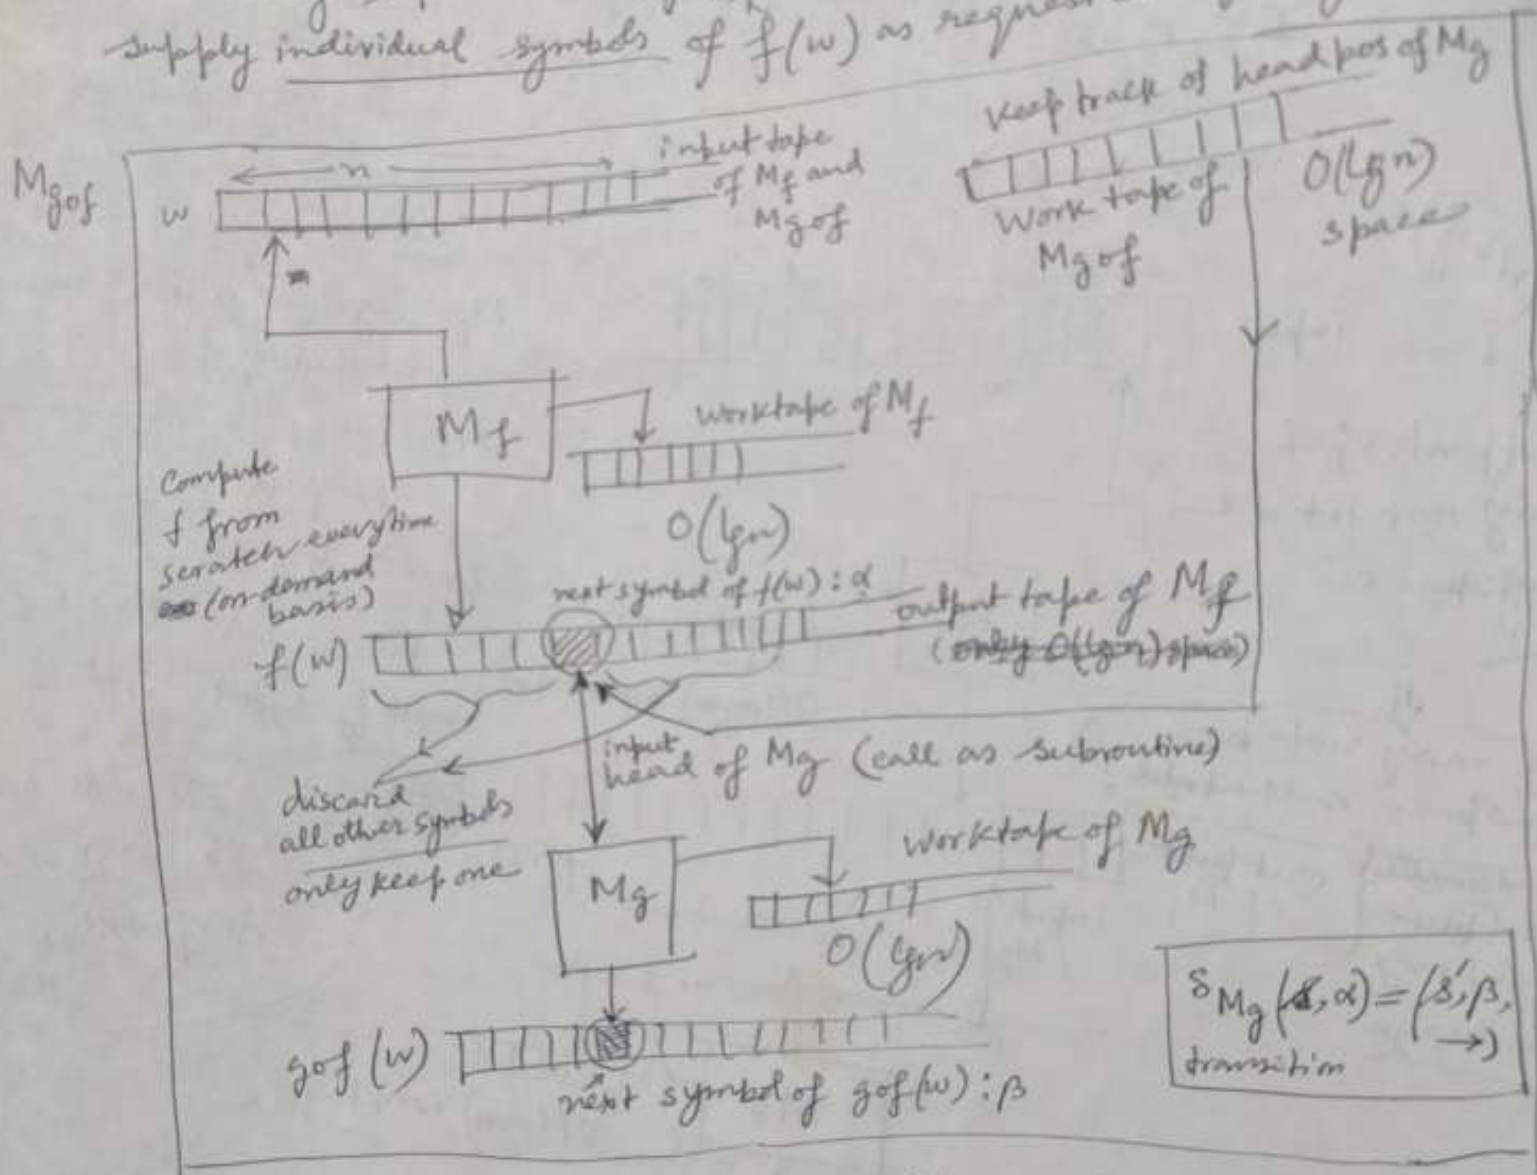 supply individual symbols of f(w) as
Keep track of head pos of Mg
Mgof
n
input tape
of Mf and
Mgof
w
Work tape of
Mgof
O(lg n)
space
Mf
worktape of Mf
O(lgn)
Compute
f from
scratch everytime
(on demand
basis)
next symbol of f(w) : α
output tape of Mf
(only O(lgn) space)
f(w)
input
head of Mg (call as subroutine)
discard
all other symbols
only keep one
Mg
worktape of Mg
O(lgn)
δMg(s, α) = (s', β,
→)
transition
gof (w)
next symbol of gof(w) : β